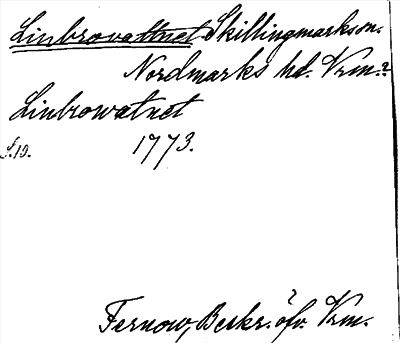 Linbrovattnet Skillingmarks sn.
Nordmarks hd. Vrm.
Linbrowatnet
S. 19. 1773.
Fernow, Beskr. öfv. Vrm.